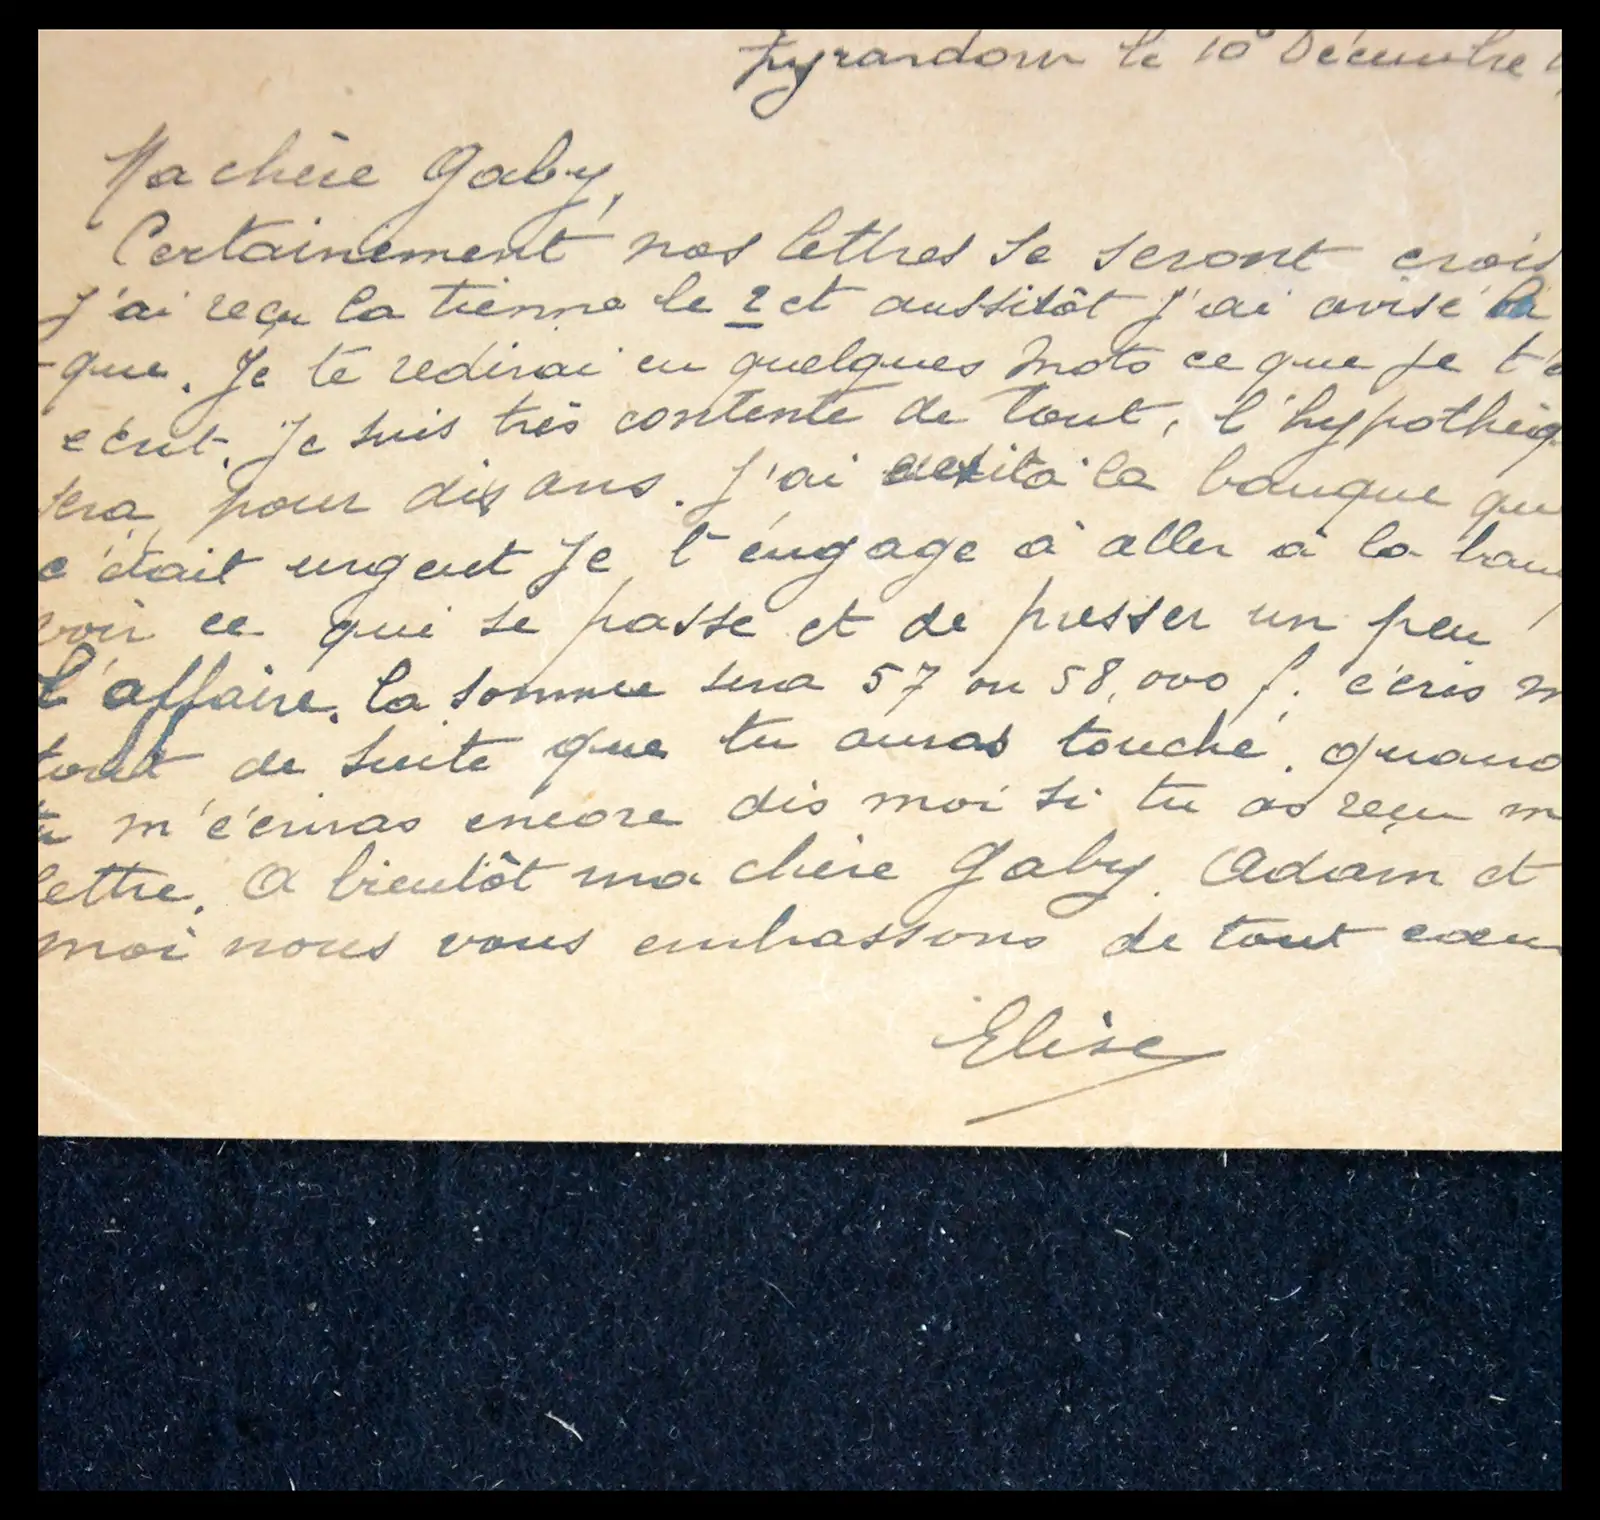 Zyrardow le 10 Décembre
Ma chère Gaby,
Certainement nos lettres se seront crois
J'ai reçu la tienne le 2 et aussitôt j'ai avisé la
-que. Je te redirai en quelques mots ce que je t'a
écrit. Je suis très contente de tout, l'hypothèq
sera pour dix ans. J'ai à la banque que
c'était urgent Je t'engage à aller à la banq
voir ce qui se passe et de presser un peu
l'affaire. la somme sera 57 ou 58,000 f. écris m
tout de suite que tu auras touché. quand
tu m'écriras encore dis moi si tu as reçu m
lettre. A bientôt ma chère Gaby. Adam et
moi nous vous embrassons de tout coeu
Elise